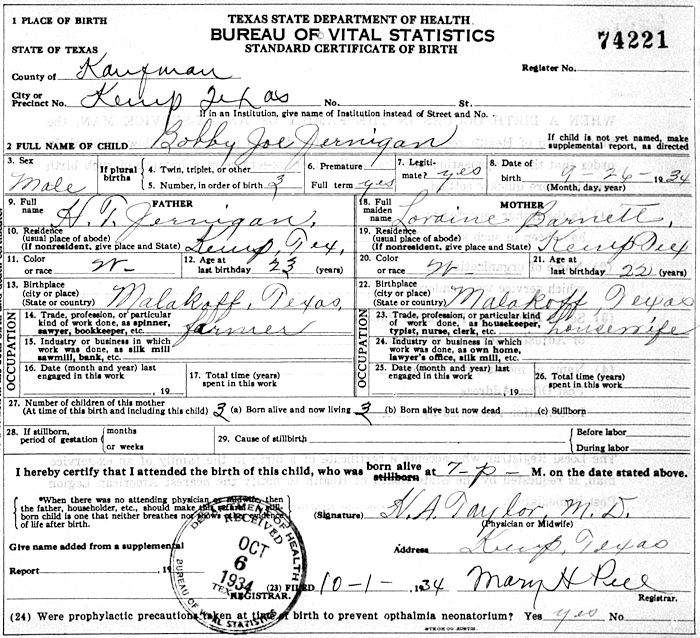 1 PLACE OF BIRTH
TEXAS STATE DEPARTMENT OF HEALTH
BUREAU OF VITAL STATISTICS
STANDARD CERTIFICATE OF BIRTH
74221
STATE OF TEXAS
County of Kaufman
Register No.
City or Precinct No. Kemp Texas No. St.
If in an Institution, give name of Institution instead of Street and No.
2 FULL NAME OF CHILD Bobby Joe Jernigan
If child is not yet named, make supplemental report, as directed
3. Sex Male
If plural births
4. Twin, triplet, or other
5. Number, in order of birth 3
6. Premature
Full term yes
7. Legitimate? yes
8. Date of birth 9-26- 1934
(Month, day, year)
FATHER
9. Full name H. T. Jernigan.
10. Residence (usual place of abode) (If nonresident, give place and State) Kemp Tex,
11. Color or race W-
12. Age at last birthday 23 (years)
13. Birthplace (city or place) (State or country) Malakoff, Texas
OCCUPATION
14. Trade, profession, or particular kind of work done, as spinner, sawyer, bookkeeper, etc. farmer
15. Industry or business in which work was done, as silk mill sawmill, bank, etc.
16. Date (month and year) last engaged in this work , 19
17. Total time (years) spent in this work
MOTHER
18. Full maiden name Loraine Barnett,
19. Residence (usual place of abode) (If nonresident, give place and State) Kemp Tex
20. Color or race W-
21. Age at last birthday 22 (years)
22. Birthplace (city or place) (State or country) Malakoff Texas
OCCUPATION
23. Trade, profession, or particular kind of work done, as housekeeper, typist, nurse, clerk, etc. housewife
24. Industry or business in which work was done, as own home, lawyer's office, silk mill, etc.
25. Date (month and year) last engaged in this work , 19
26. Total time (years) spent in this work
27. Number of children of this mother
(At time of this birth and including this child) 3 (a) Born alive and now living 3 (b) Born alive but now dead (c) Stillborn
28. If stillborn, period of gestation months or weeks
29. Cause of stillbirth
Before labor
During labor
I hereby certify that I attended the birth of this child, who was born alive stillborn at 7-P- M. on the date stated above.
*When there was no attending physician or midwife then
the father, householder, etc., should make this
born child is one that neither breathes nor shows other evidence
of life after birth.
(Signature) H. A. Taylor, M. D.
(Physician or Midwife)
Give name added from a supplemental
Report , 19
Address Kemp, Texas
DEPARTMENT OF HEALTH
RECEIVED
OCT
6
1934
TEXAS
BUREAU OF VITAL STATISTICS
REGISTRAR.
(23) FILED 10-1- , 1934 Mary H Peel
Registrar.
(24) Were prophylactic precautions taken at time of birth to prevent opthalmia neonatorium? Yes yes No